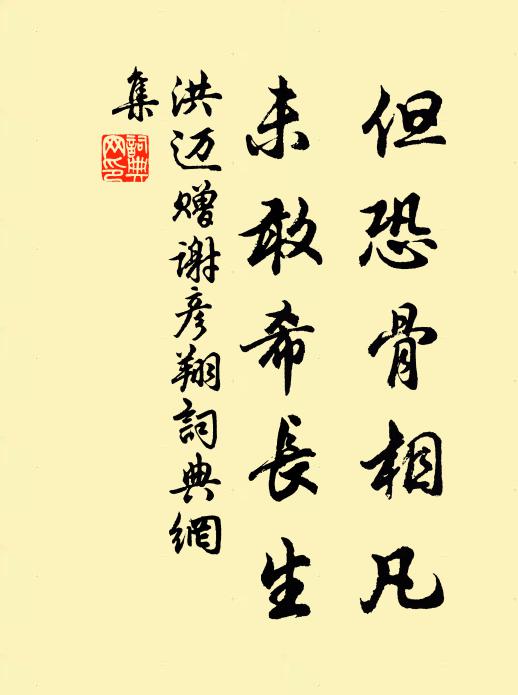 但恐骨相凡
未敢希長生
洪迈赠谢彦翔詞典網
集
詞典
网印